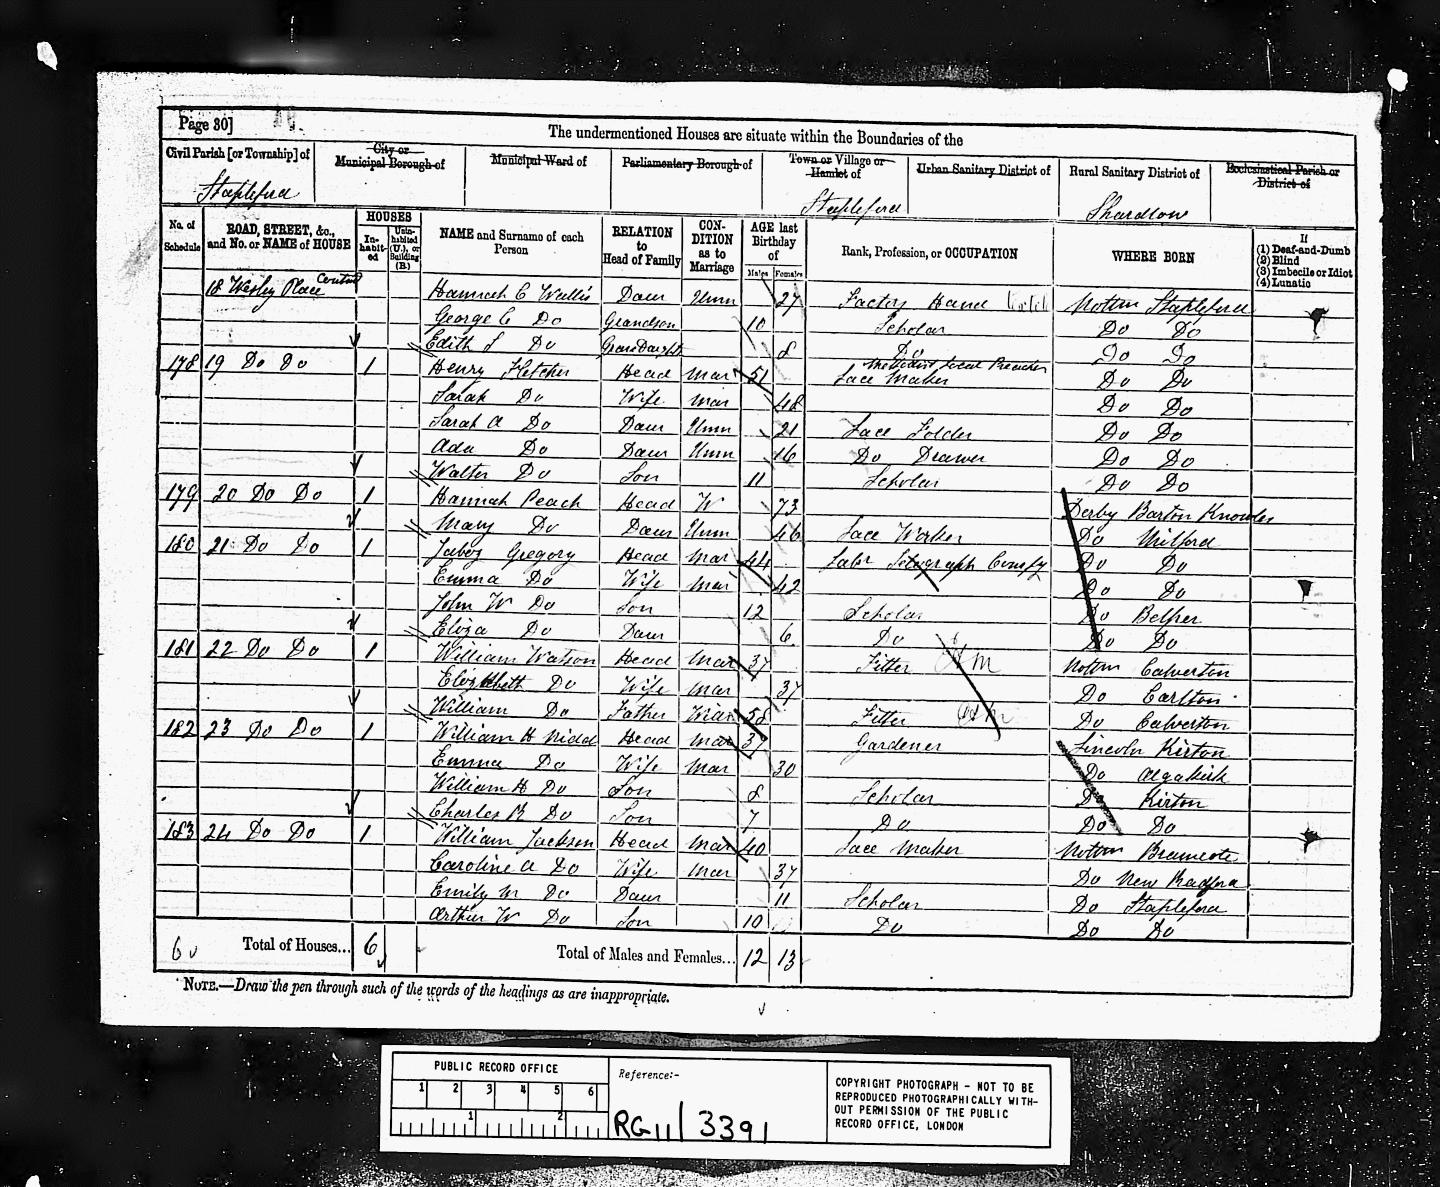 Page 30]
The undermentioned Houses are situate within the Boundaries of the
Civil Parish [or Township] of
City or Municipal Borough of
Municipal Ward of
Parliamentary Borough of
Town or Village or Hamlet of
Urban Sanitary District of
Rural Sanitary District of
Ecclesiastical Parish or District of
Stapleford
Stapleford
Shardlow
No. of Schedule
ROAD, STREET, &c., and No. or NAME of HOUSE
HOUSES
In-habit-ed
Unin-habited (U.), or Building (B.)
NAME and Surname of each Person
RELATION to Head of Family
CON-DITION as to Marriage
AGE last Birthday of
Males
Females
Rank, Profession, or OCCUPATION
WHERE BORN
If
(1) Deaf-and-Dumb
(2) Blind
(3) Imbecile or Idiot
(4) Lunatic
18 Wesley Place Hannah C Wallis Daur Unm 27 Factory Hand Nottm Stapleford
George C Do Grandson 10 Scholar Do Do
Edith S Do Grand Daught 8 Do Do Do
178 19 Do Do 1 Henry Fletcher Head Mar 51 Lace Maker Methodist Local Preacher Do Do
Sarah Do Wife Mar 48 Do Do
Sarah A Do Daur Unm 21 Lace Folder Do Do
Ada Do Daur Unm 16 Do Drawer Do Do
Walter Do Son 11 Scholar Do Do
179 20 Do Do 1 Hannah Peach Head W 73 Derby Barton Knowles
Mary Do Daur Unm 46 Lace Worker Do Milford
180 21 Do Do 1 Jabez Gregory Head Mar 44 Do Do
Emma Do Wife Mar 42 Do Do
John W Do Son 12 Scholar Do Belper
Eliza Do Daur 6 Do Do Do
181 22 Do Do 1 William Watson Head Mar 37 Fitter Nottm Calverton
Elizabeth Do Wife Mar 37 Do Carlton
William Do Father Widr 58 Fitter Do Calverton
182 23 Do Do 1 William H Nidd Head Mar 37 Gardener Lincoln Kirton
Emma Do Wife Mar 30 Do Algakirk
William H Do Son 8 Scholar Do Kirton
Charles R Do Son 7 Do Do Do
183 24 Do Do 1 William Jackson Head Mar 40 Lace Maker Nottm Bramcote
Caroline A Do Wife Mar 37 Do New Radford
Emily M Do Daur 11 Scholar Do Stapleford
Arthur W Do Son 10 Do Do Do
6 Total of Houses... 6 Total of Males and Females... 12 13
NOTE.—Draw the pen through such of the words of the headings as are inappropriate.
PUBLIC RECORD OFFICE
1 2 3 4 5 6
1 2
Reference:-
RG 11 / 3391
COPYRIGHT PHOTOGRAPH - NOT TO BE
REPRODUCED PHOTOGRAPHICALLY WITH-
OUT PERMISSION OF THE PUBLIC
RECORD OFFICE, LONDON